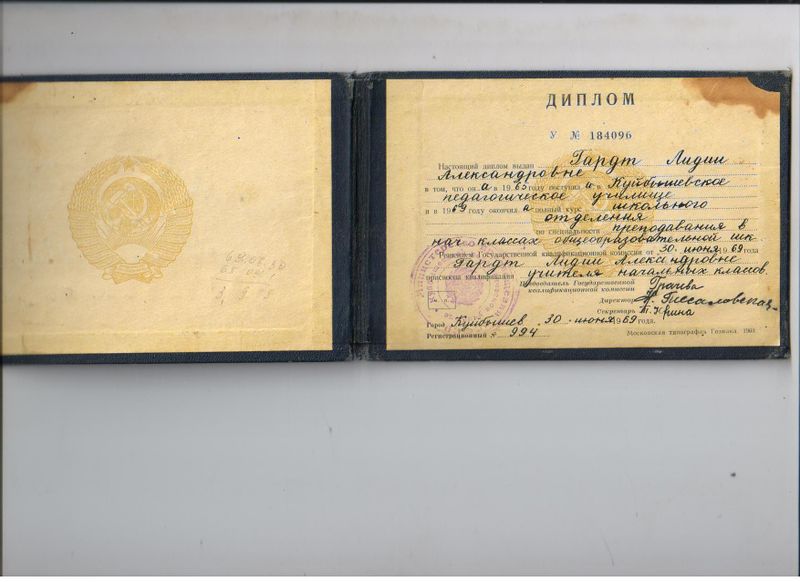 ДИПЛОМ
У № 184096
Настоящий диплом выдан Гардт Лидии
Александровне
в том, что он а в 1965 году поступил а в Куйбышевское
педагогическое училище
и в 1969 году окончил а полный курс школьного
отделения
по специальности преподавания в
нач. классах общеобразовательной шк.
Решением Государственной квалификационной комиссии от 30 июня 1969 года
Гардт Лидии Александровне
присвоена квалификация учителя начальных классов.
Председатель Государственной
квалификационной комиссии
Директор
Секретарь
Город Куйбышев 30 июня 1969 года.
Регистрационный № 994
Московская типография Гознака. 1961